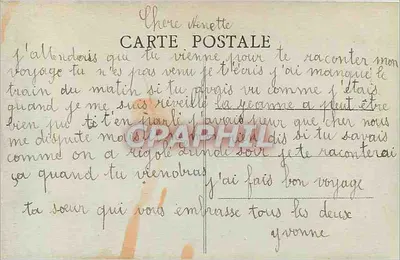 Chere Ninette
CARTE POSTALE
j'attendais que tu vienne pour te raconter mon
voyage tu n'es pas venu je t'écris j'ai manqué le
train du matin si tu avais vu comme j'étais
quand je me suis réveillé la jeanne a peut être
bien pu t'en parlé j'avais peur que cher nous
me dispute mais si tu savais
comme on a rigolé lundi soir je te raconterai
ça quand tu viendras
j'ai fais bon voyage
ta soeur qui vous embrasse tous les deux
yvonne
CPAPHIL